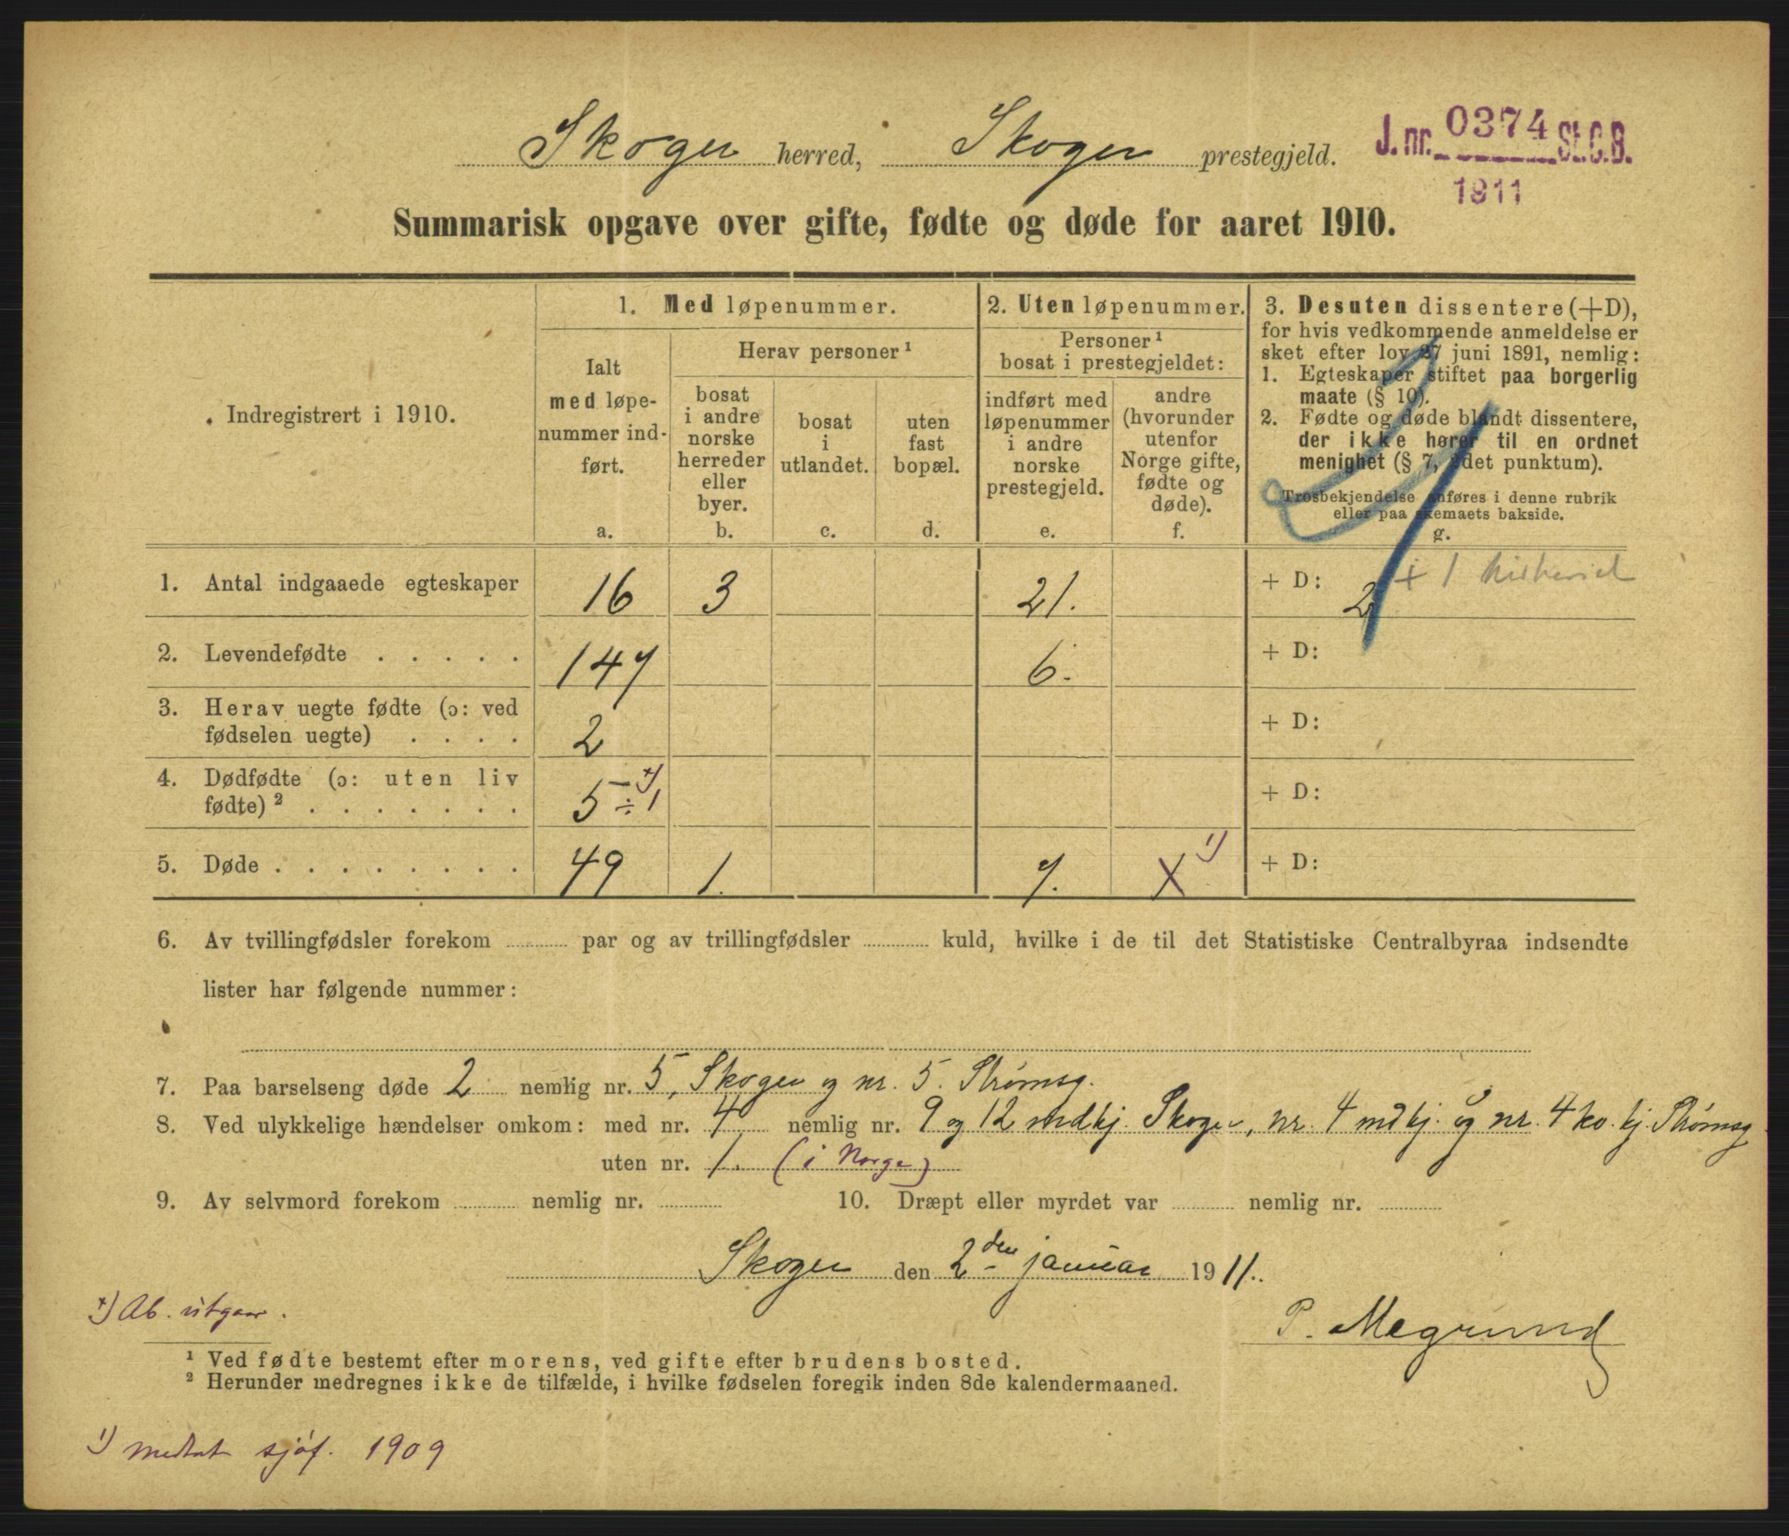 Skoger herred, Skoger prestegjeld.
J. nr. 0374 St. C. B.
1911
Summarisk opgave over gifte, fødte og døde for aaret 1910.
Indregistrert i 1910.
1. Med løpenummer.
Ialt
med løpe-
nummer ind-
ført.
a.
Herav personer ¹
bosat
i andre
norske
herreder
eller
byer.
b.
bosat
i
utlandet.
c.
uten
fast
bopæl.
d.
2. Uten løpenummer.
Personer ¹
bosat i prestegjeldet:
indført med
løpenummer
i andre
norske
prestegjeld.
e.
andre
(hvorunder
utenfor
Norge gifte,
fødte og
døde).
f.
3. Desuten dissentere (+D),
for hvis vedkommende anmeldelse er
sket efter lov 27 juni 1891, nemlig:
1. Egteskaper stiftet paa borgerlig
maate (§ 10).
2. Fødte og døde blandt dissentere,
der ikke hører til en ordnet
menighet (§ 7, 2det punktum).
Trosbekjendelse anføres i denne rubrik
eller paa skemaets bakside.
g.
1. Antal indgaaede egteskaper 16 3 21. + D: 2 + 1
2. Levendefødte . . . . . 147 6. + D:
3. Herav uegte fødte (ɔ: ved
fødselen uegte) . . . . 2 + D:
4. Dødfødte (ɔ: uten liv
fødte) ² . . . . . . . 5 ÷ 1 +) + D:
5. Døde . . . . . . . . 49 1. 7. X 1) + D:
6. Av tvillingfødsler forekom par og av trillingfødsler kuld, hvilke i de til det Statistiske Centralbyraa indsendte
lister har følgende nummer:
7. Paa barselseng døde 2 nemlig nr. 5, Skoger og nr. 5. Strømsg.
8. Ved ulykkelige hændelser omkom: med nr. 4 nemlig nr. 9 og 12 mdkj. Skoger, nr. 4 mdkj. og nr. 4 ko. kj. Strømsg
uten nr. 1. (i Norge)
9. Av selvmord forekom nemlig nr. 10. Dræpt eller myrdet var nemlig nr.
Skoger den 2den januar 1911.
+) Ab. utgaar.
P. Magrund
¹ Ved fødte bestemt efter morens, ved gifte efter brudens bosted.
² Herunder medregnes ikke de tilfælde, i hvilke fødselen foregik inden 8de kalendermaaned.
1) medtat sjøf. 1909